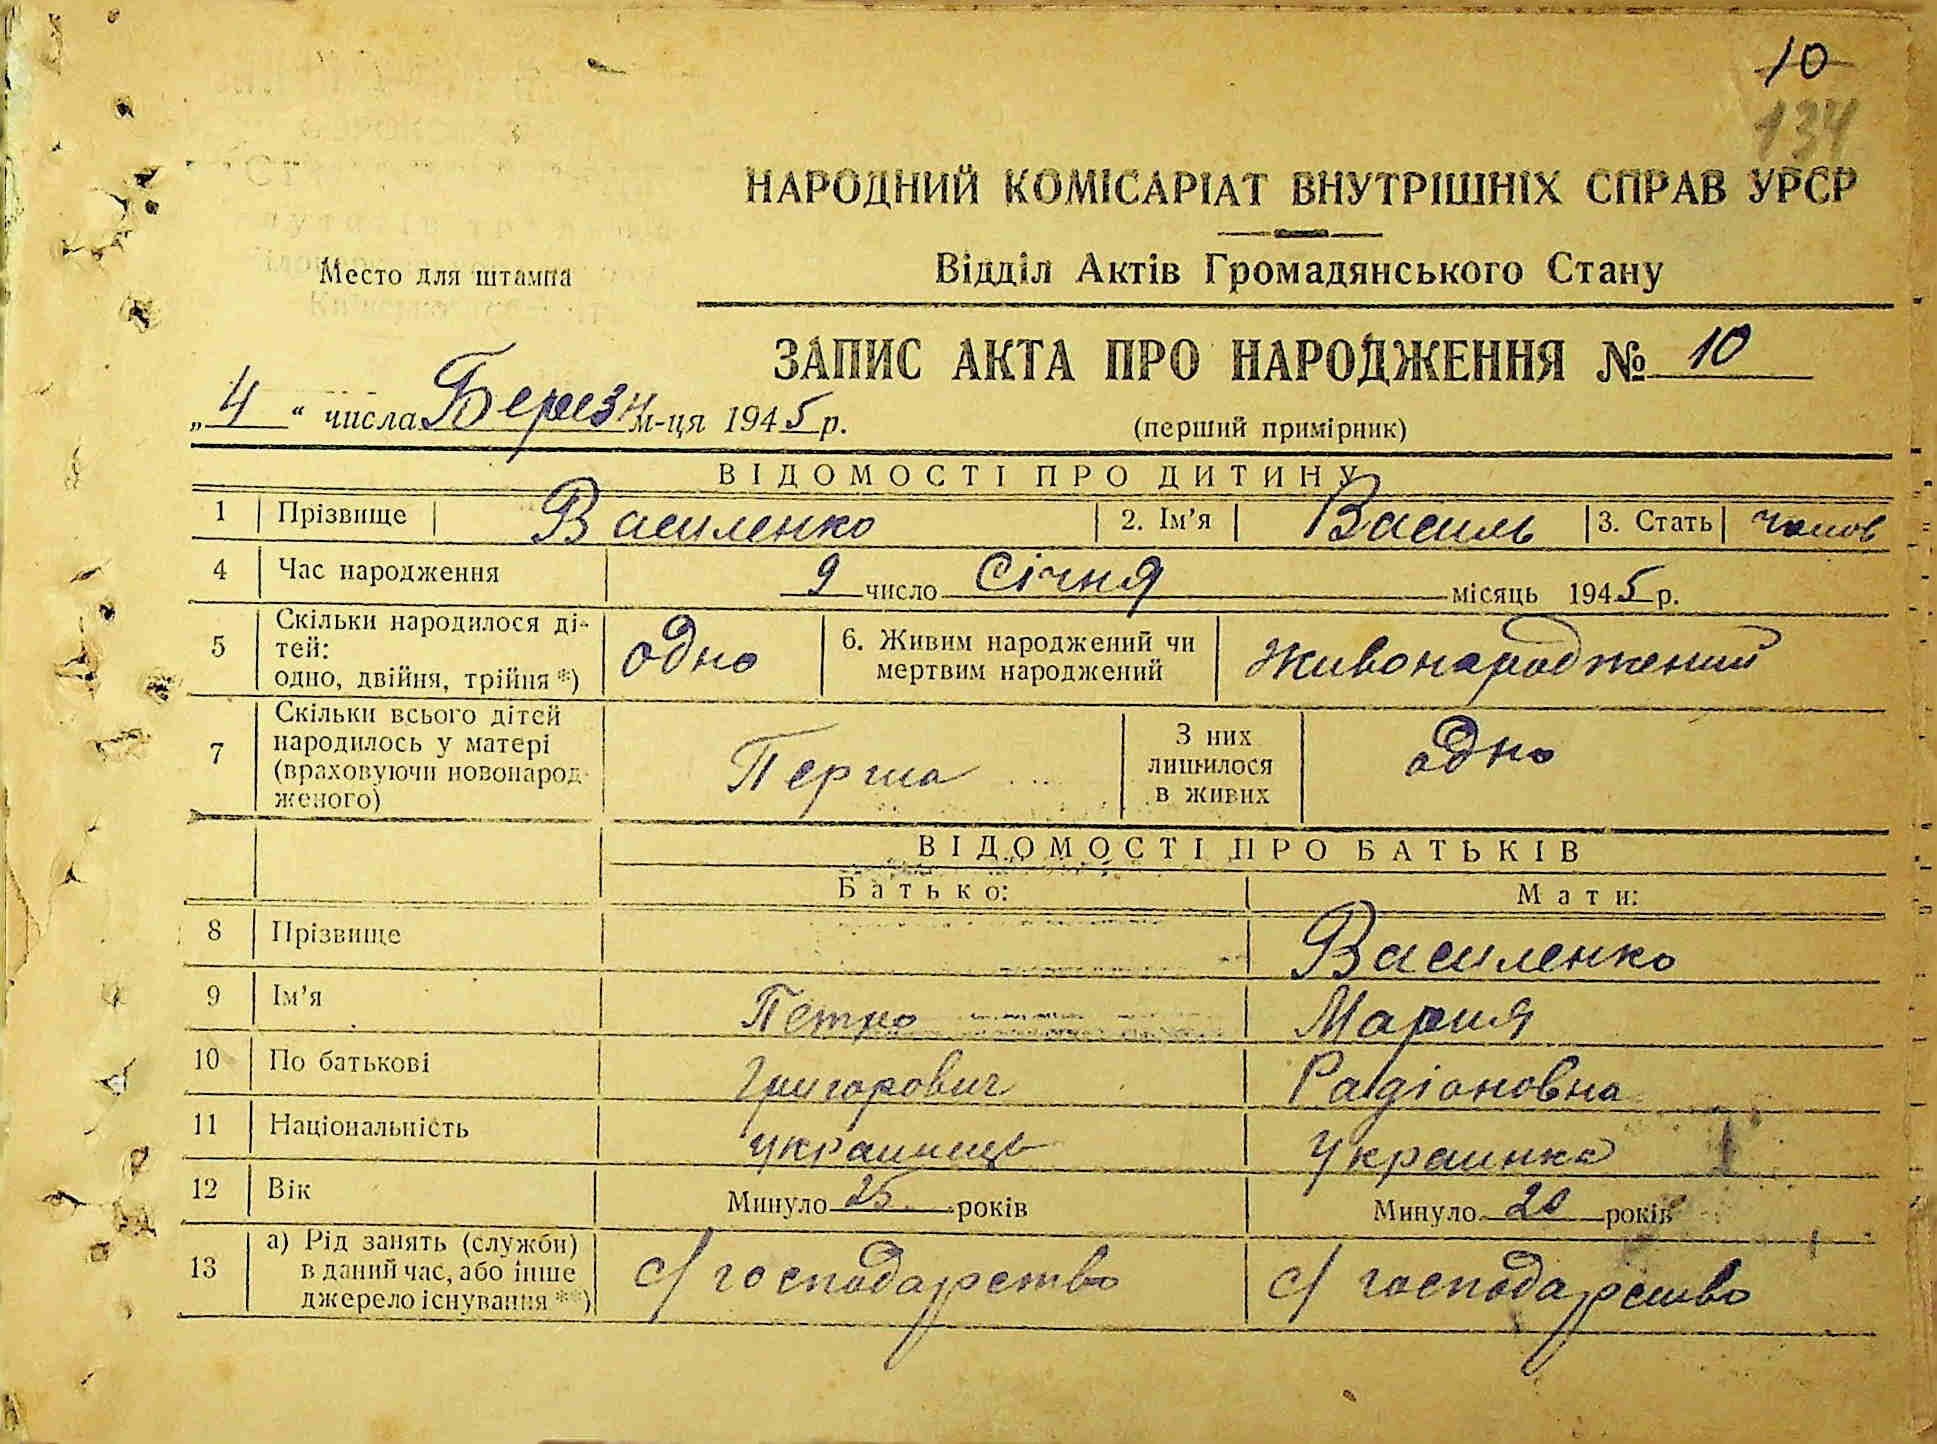 10
134
НАРОДНИЙ КОМІСАРІАТ ВНУТРІШНІХ СПРАВ УРСР
Место для штампа
Відділ Актів Громадянського Стану
ЗАПИС АКТА ПРО НАРОДЖЕННЯ № 10
„4“ числа Березн м-ця 1945 р.
(перший примірник)
ВІДОМОСТІ ПРО ДИТИНУ
1 Прізвище Василенко 2. Ім’я Василь 3. Стать чолов
4 Час народження 9 число Січня місяць 1945 р.
5 Скільки народилося ді-
тей:
одно, двійня, трійня *) одно 6. Живим народжений чи
мертвим народжений живонароджений
7 Скільки всього дітей
народилось у матері
(враховуючи новонарод-
женого) Перша З них
лишилося
в живих одно
ВІДОМОСТІ ПРО БАТЬКІВ
Батько: Мати:
8 Прізвище Василенко
9 Ім’я Петро Мария
10 По батькові Григорович Радіоновна
11 Національність украинець украинка
12 Вік Минуло 25 років Минуло 20 років
13 а) Рід занять (служби)
в даний час, або інше
джерело існування **) с/господарство с/господарство